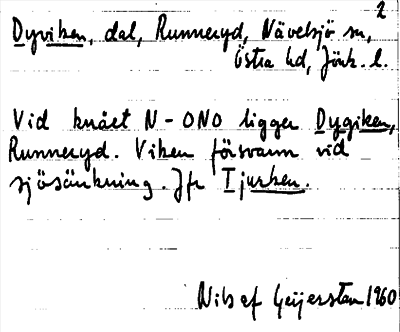 2
Dyviken, dal, Runneryd, Nävelsjö sn,
Östra hd, Jönk. l.
Vid knäet N-ONO ligger Dygiken,
Runneryd. Viken försvann vid
sjösänkning. Jfr Tjurken.
Nils af Geijerstam 1960